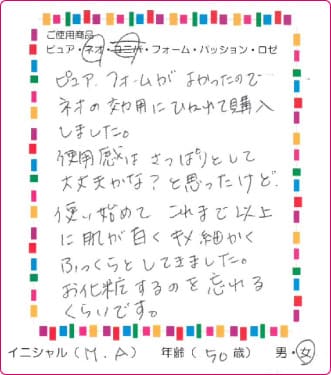 ご使用商品
ピュア・ネオ・ユニバ・フォーム・パッション・ロゼ
ピュア、フォームがよかったので
ネオの効用にひかれて購入
しました。
使用感はさっぱりとして
大丈夫かな？と思ったけど、
使い始めて これまで以上
に肌が白くキメ細かく
ふっくらとしてきました。
お化粧するのを忘れる
くらいです。
イニシャル（M.A） 年齢（50歳） 男・女